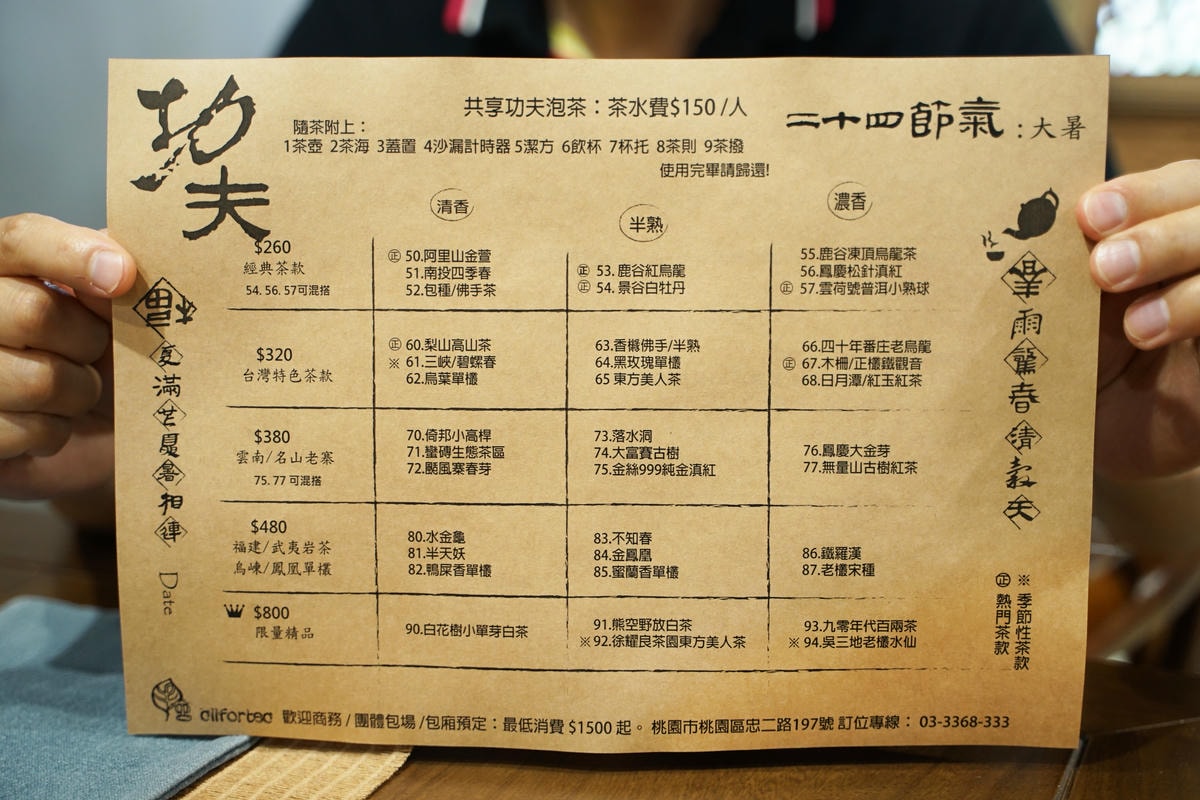 功夫
共享功夫泡茶：茶水費$150 /人
隨茶附上：
1茶壺 2茶海 3蓋置 4沙漏計時器 5潔方 6飲杯 7杯托 8茶則 9茶撥
使用完畢請歸還!
二十四節氣：大暑
清香
半熟
濃香
$260
經典茶款
54. 56. 57可混搭
㊣ 50.阿里山金萱
51.南投四季春
52.包種/佛手茶
㊣ 53. 鹿谷紅烏龍
㊣ 54. 景谷白牡丹
55.鹿谷凍頂烏龍茶
56.鳳慶松針滇紅
㊣ 57.雲荷號普洱小熟球
$320
台灣特色茶款
㊣ 60.梨山高山茶
※ 61.三峽/碧螺春
62.烏葉單欉
63.香櫞佛手/半熟
64.黑玫瑰單欉
65 東方美人茶
66.四十年番庄老烏龍
㊣ 67.木柵/正欉鐵觀音
68.日月潭/紅玉紅茶
$380
雲南/名山老寨
75. 77 可混搭
70.倚邦小高桿
71.蠻磚生態茶區
72.颴風寨春芽
73.落水洞
74.大富賽古樹
75.金絲999純金滇紅
76.鳳慶大金芽
77.無量山古樹紅茶
$480
福建/武夷岩茶
烏崠/鳳凰單欉
80.水金龜
81.半天妖
82.鴨屎香單欉
83.不知春
84.金鳳凰
85.蜜蘭香單欉
86.鐵羅漢
87.老欉宋種
$800
限量精品
90.白花樹小單芽白茶
91.熊空野放白茶
※92.徐耀良茶園東方美人茶
93.九零年代百兩茶
※ 94.吳三地老欉水仙
夏滿芒夏暑相連
Date
雨驚春清穀天
※ 季節性茶款
㊣ 熱門茶款
歡迎商務 / 團體包場 /包廂預定：最低消費 $1500 起。 桃園市桃園區忠二路197號 訂位專線： 03-3368-333